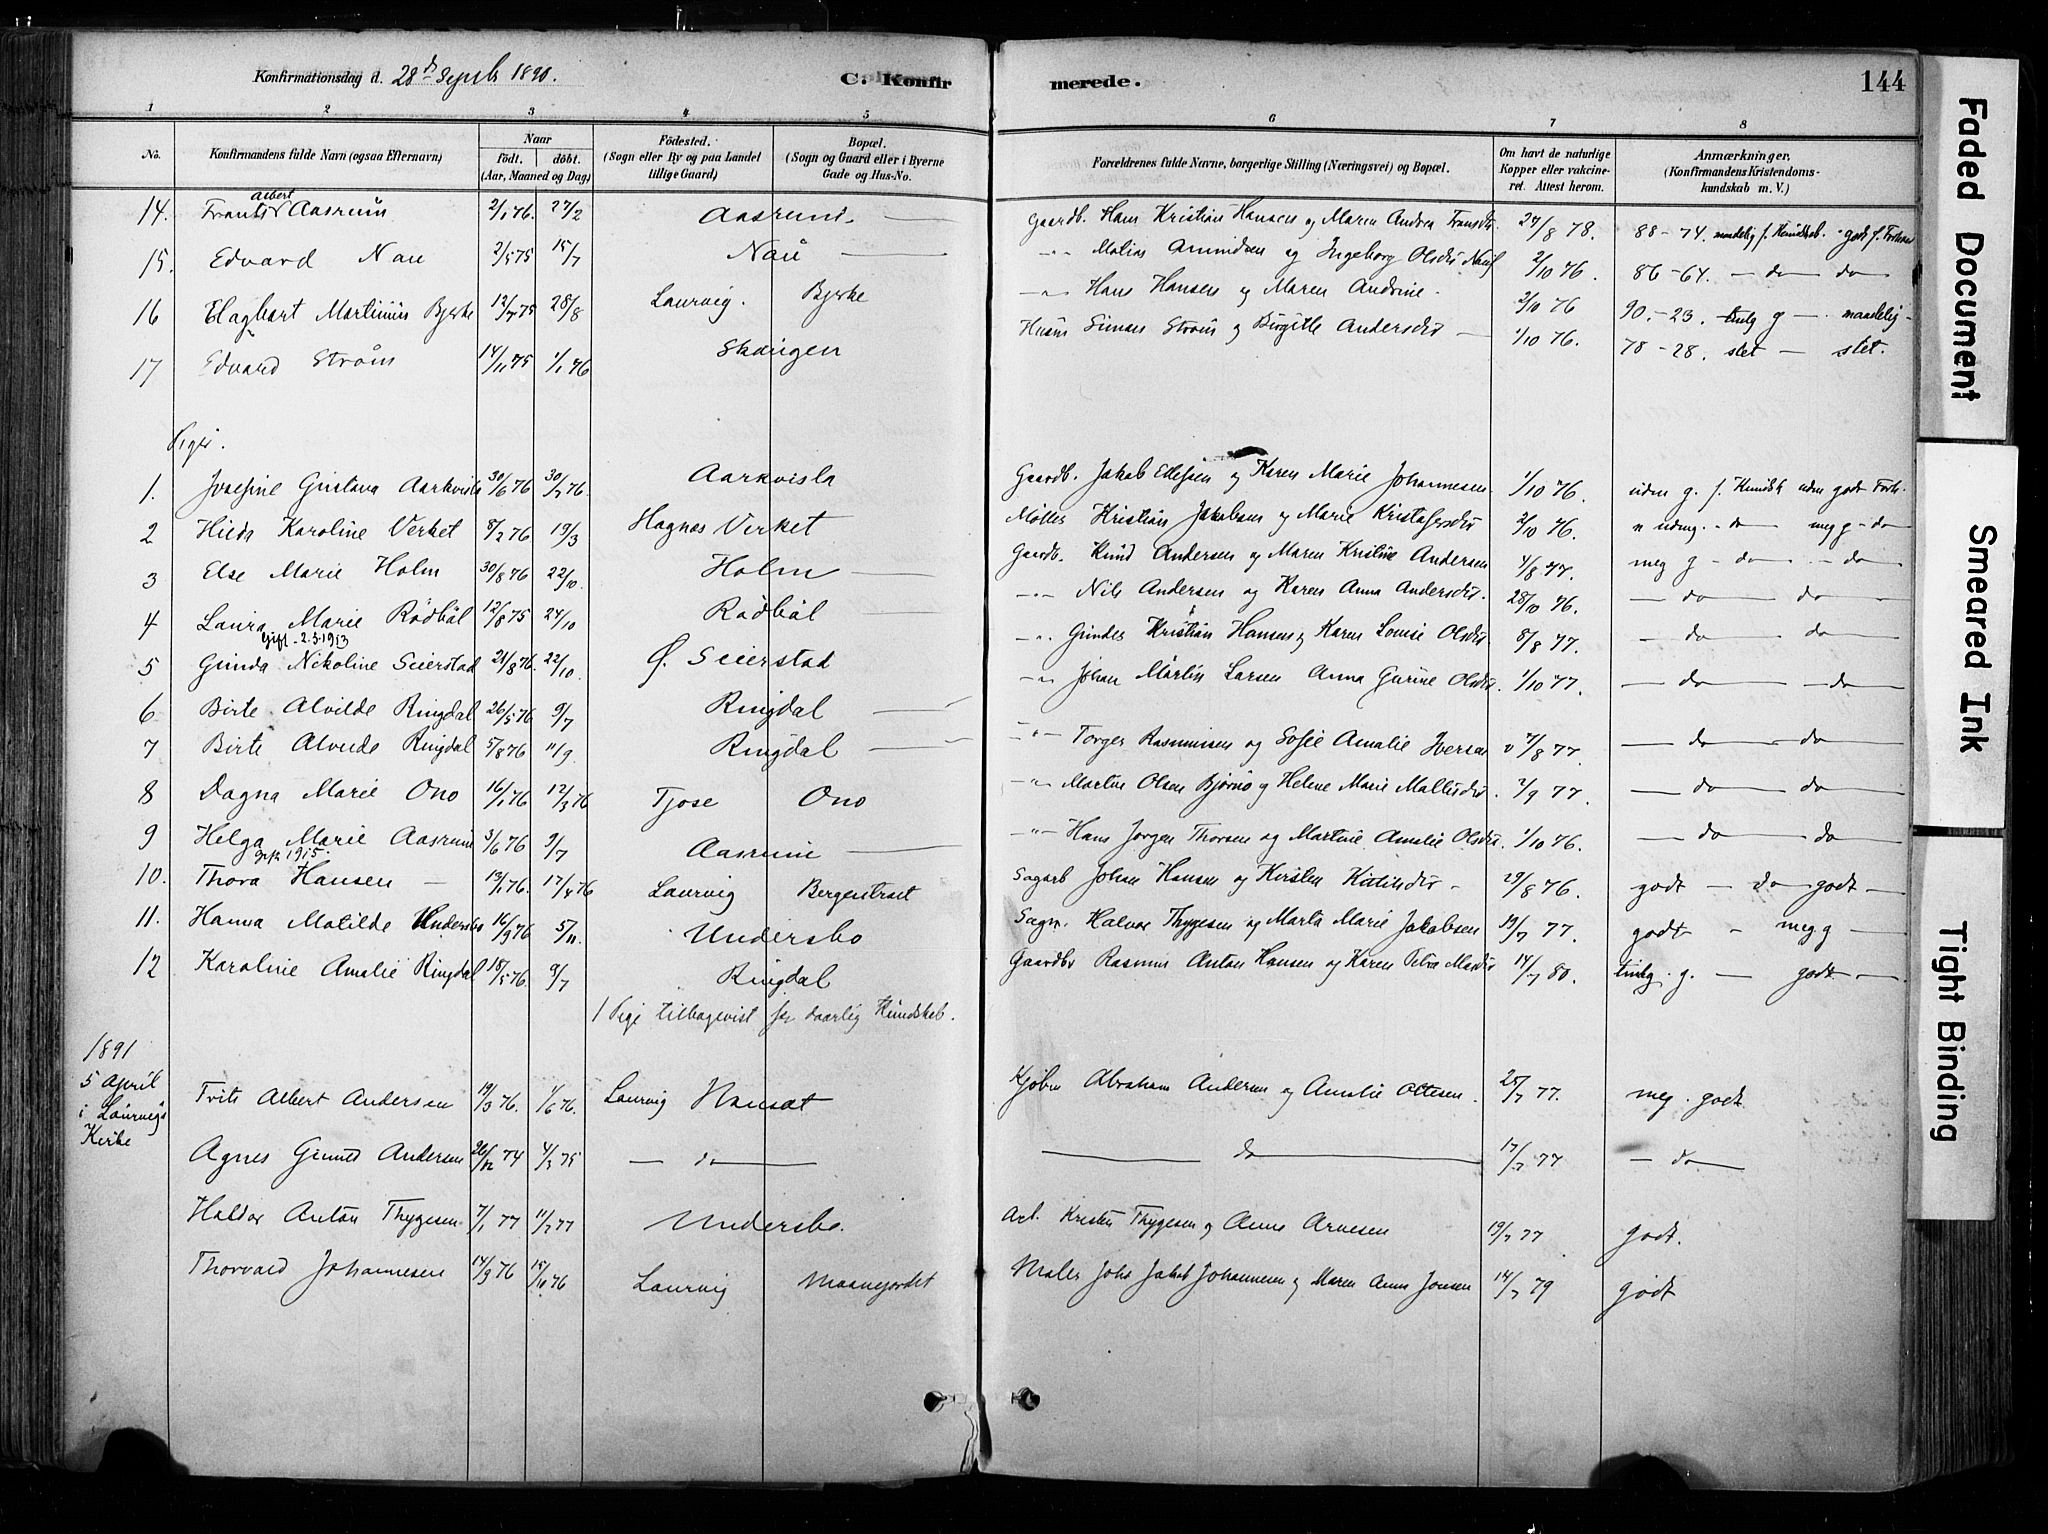 Konfirmationsdag d. 28d Septb 1890.
C. Konfirmerede.
144
1 2 3 4 5 6 7 8
No.
Konfirmandens fulde Navn (ogsaa Efternavn)
Naar
födt. döbt.
(Aar, Maaned og Dag)
Födested.
(Sogn eller By og paa Landet
tillige Gaard)
Bopæl.
(Sogn og Gaard eller i Byerne
Gade og Hus-No.
Forældrenes fulde Navne, borgerlige Stilling (Næringsvei) og Bopæl.
Om havt de naturlige
Kopper eller vakcine-
ret. Attest herom.
Anmærkninger.
(Konfirmandens Kristendoms-
kundskab m. V.)
albert
14. Frants Aasrum 2/1 76. 27/2 Aasrum Gaardb. Hans Kristian Hansen og Maren Andrea Fransdr. 27/8 78. 88-74. maadelig f. Kundskab. godt f. Forhold
15. Edvard Nau 2/5 75 15/7 Nau -"- Matias Amundsen og Ingeborg Olsdr Nauf 2/10 76 86-64. — do — do
16 Hagbart Martinius Bjerke 12/7 75 28/8 Laurvig. Bjerke -"- Hans Hansen og Maren Andrine. 2/10 76 90.-23. tmlg g — maadelig -
17 Edvard Strøm 14/11 75 1/1 76 Skaugen Husm Simon Strøm og Birgitte Andersdr — 1/10 76. 78-28. slet — slet.
Piger.
1. Josefine Gustava Aarkvisla 30/6 76 30/7 76. Aarkvisla Gaardb. Jakob Ellefsen og Karen Marie Johannesen. 1/10 76. udm g. f. Kundsk udm godt Forh.
2 Hilda Karoline Verket 8/2 76 19/3 Hagnes Verket Møller Kristian Jakobsen og Marie Kristofersdr 2/10 76. " udmg. - do meg g - do
3 Else Marie Holm 30/8 76 22/10 Holm Gaardb. Knud Andersen og Maren Kristine Andersen 4/8 77. meg g - do - do
4 Laura Marie Rødbøl 12/8 75 24/10 Rødbøl -"- Nils Andersen og Karen Anna Andersdr. 28/10 76. — do — do
Gift. 2.3.1913
5 Gunda Nikoline Seierstad 21/8 76. 22/10 Ø. Seierstad -"- Gunder Kristian Hansen og Karen Lovise Olsdr 8/8 77. — do — do
6 Birte Alvilde Ringdal 26/5 76 9/7 Ringdal -"- Johan Martin Larsen Anna Gurine Olsdr. 1/10 77. — do — do
7 Birte Alvilde Ringdal 5/8 76 11/9 Ringdal -"- Torger Rasmusen og Sofie Amalie Iversen 7/8 77. — do — do
8 Dagna Marie Ono 16/1 76 12/3 76 Tjose Ono -"- Martin Olsen Bjørnø og Helene Marie Mallisdr. 2/9 77. — do — do
9 Helga Marie Aasrum 3/6 76 9/7 Aasrum -"- Hans Jørgen Thorsen og Martine Amalie Olsdr. 1/10 76. — do — do
gift 1915.
10. Thora Hansen — 13/1 76. 17/4 76 Laurvig Bergestrait Sagarb Johan Hansen og Kirsten Kittilsdr - 29/8 76. godt — do godt —
11. Hanna Matilde Undersbo 16/9 76 5/11. Undersbo Sagm. Halvor Thygesen og Marta Marie Jakobsen 19/7 77. godt - meg g —
12 Karoline Amalie Ringdal 15/5 76. 9/7 Ringdal Gaardbr Rasmus Anton Hansen og Karen Petra Masdr 14/7 80. tmlg. g. — godt —
1 Pige tilbagevist for daarlig Kundskab.
1891
5 April
i Laurvigs
Kirke
Frits Albert Andersen 19/3 76. 1/6 76. Laurvig Hansat Kjøbm Abraham Andersen og Amalie Ottesen. 25/7 77. meg. godt.
Agnes Andersen 26/12 74 4/3 75 — do — — do — 17/7 77 — do —
Haldor Anton Thygesen 7/1 77 11/2 77 Undersbo. Arb. Kristen Thygesen og Anne Arnesen 19/7 77 godt.
Thorvald Johannesen 14/9 76 15/10 76 Laurvig Maanejordet Maler Johs Jakob Johannesen og Maren Anne Jonsen 14/7 79 godt
Faded Document
Smeared Ink
Tight Binding